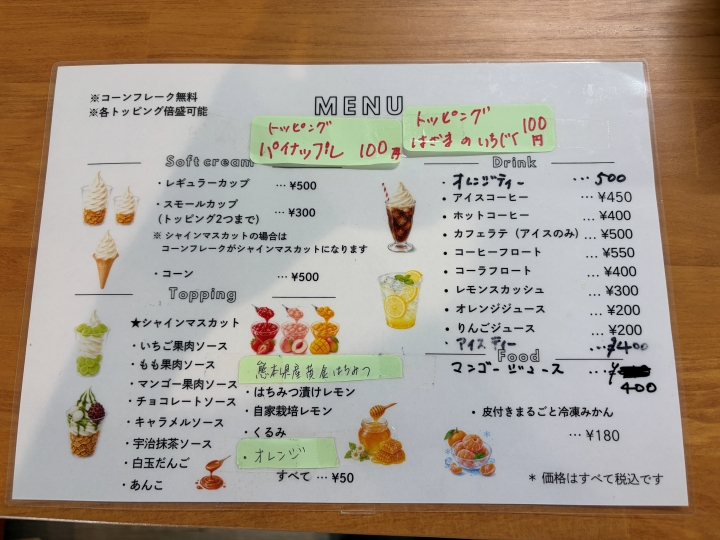 ※コーンフレーク無料
※各トッピング倍盛可能
MENU
トッピング
パイナップル 100円
トッピング 100円
はざまのいちじく
Soft cream
・レギュラーカップ …¥500
・スモールカップ …¥300
(トッピング2つまで)
※ シャインマスカットの場合は
コーンフレークがシャインマスカットになります
・コーン …¥500
Topping
★シャインマスカット
・いちご果肉ソース
・もも果肉ソース
・マンゴー果肉ソース
・チョコレートソース
・キャラメルソース
・宇治抹茶ソース
・白玉だんご
・あんこ
熊本県産黄金はちみつ
・はちみつ漬けレモン
・自家栽培レモン
・くるみ
・オレンジ
すべて …¥50
Drink
・オレンジティー … 500
・アイスコーヒー …¥450
・ホットコーヒー …¥400
・カフェラテ（アイスのみ）…¥500
・コーヒーフロート …¥550
・コーラフロート …¥400
・レモンスカッシュ …¥300
・オレンジジュース …¥200
・りんごジュース …¥200
・アイスティー …¥400
Food
マンゴージュース …¥
400
・皮付きまるごと冷凍みかん
…¥180
＊ 価格はすべて税込です